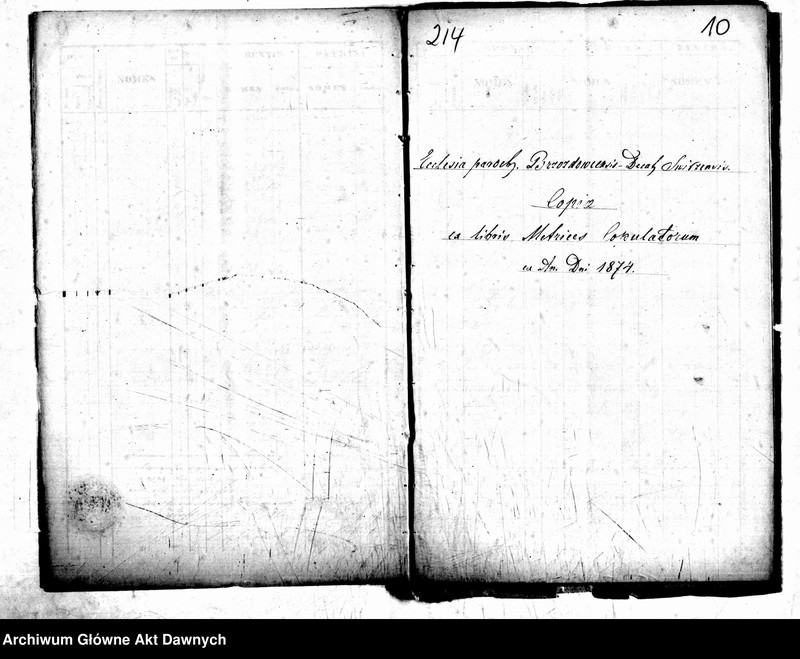 214
10
Ecclesia paroch. Brzozdowiensis Decat Swirzensis.
Copia
ex libris Metrices Copulatorum
ex An. Dni 1874.
Archiwum Główne Akt Dawnych